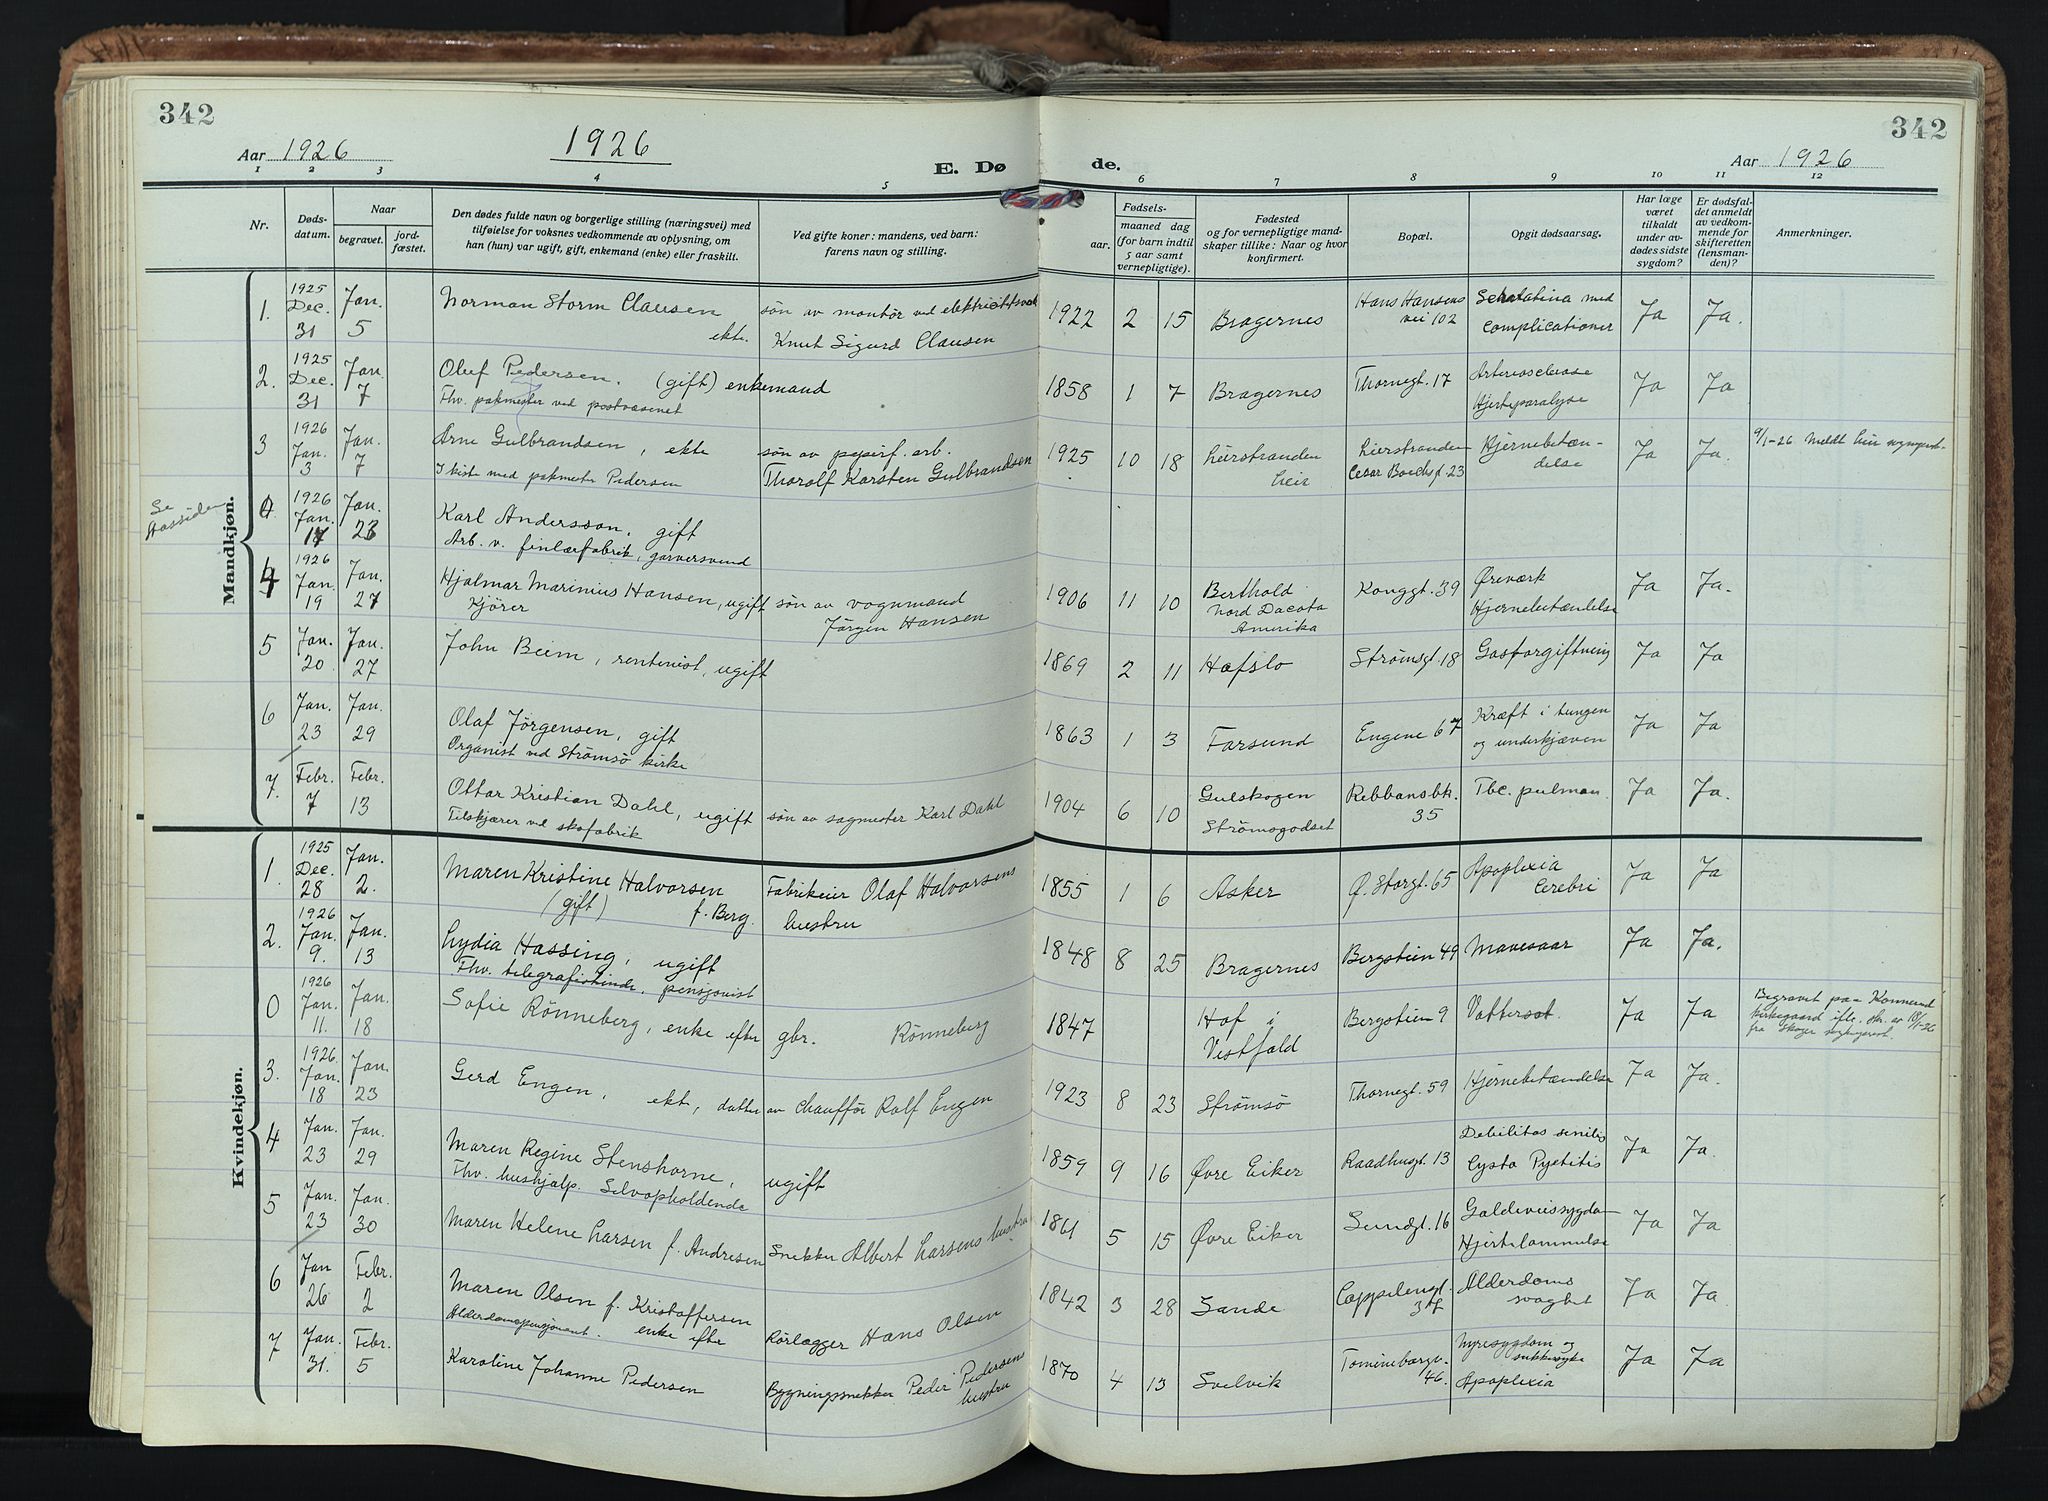 342
342
Aar 1926
1926
E. Dø
de.
Aar 1926
1 2 3 4 5 6 7 8 9 10 11 12
Nr.
Døds-
datum.
Naar
begravet.
jord-
fæstet.
Den dødes fulde navn og borgerlige stilling (næringsvei) med
tilføielse for voksnes vedkommende av oplysning, om
han (hun) var ugift, gift, enkemand (enke) eller fraskilt.
Ved gifte koner: mandens, ved barn:
farens navn og stilling.
Fødsels-
aar.
maaned dag
(for barn indtil
5 aar samt
vernepligtige).
Fødested
og for vernepligtige mand-
skaper tillike: Naar og hvor
konfirmert.
Bopæl.
Opgit dødsaarsag.
Har læge
været
tilkaldt
under av-
dødes sidste
sygdom?
Er dødsfal-
det anmeldt
av vedkom-
mende for
skifteretten
(lensman-
den)?
Anmerkninger.
Mandkjøn.
1. 1925 Dec. 31 Jan. 5 Norman Storm Clausen ekte. søn av montør ved elektricitetsverk
Knut Sigurd Clausen
1922 2 15 Bragernes Hans Hansens vei 102 Scarlatina med complicationer Ja Ja.
2. 1925 Dec. 31 Jan. 7 Oluf Pedersen. (gift) enkemand
Fhv. pakmester ved postvæsenet
1858 1 7 Bragernes Thornegt. 17 Arteriosclerose Hjerteparalyse Ja Ja
3 1926 Jan. 3 Jan. 7 Arne Gulbrandsen, ekte søn av papirf. arb.
I kiste med pakmester Pedersen Thoralf Karsten Gulbrandsen
1925 10 18 Lierstranden Lier Lierstranden Cesar Boecksgt. 23 Hjernebetæn-delse Ja Ja. 9/1-26 Meldt Lier sogneprest.
Se Aassiden
1926 Jan. 17 Jan. 23 Karl Andersson, gift
Arb. v. finlærfabrik, garversvend
4 1926 Jan. 19 Jan. 27 Hjalmar Marinius Hansen, ugift søn av vognmand
Kjører Jørgen Hansen
1906 11 10 Berthold Nord Dacota Amerika Konggt. 39 Øreværk Hjernebetændelse Ja Ja.
5 Jan. 20 Jan. 27 John Beim, rentenist, ugift
1869 2 11 Hafslo Strømsgt. 18 Gasforgiftning Ja Ja
6 Jan. 23 Jan. 29 Olaf Jørgensen, gift
Organist ved Strømsø kirke
1863 1 3 Farsund Engene 67 Kræft i tungen og underkjæven Ja Ja
7. Febr. 7 Febr. 13 Ottar Kristian Dahl, ugift søn av sagmester Karl Dahl
Tilskjærer ved skofabrik
1904 6 10 Gulskogen Strømsgodset Ribbansbk. 35 Tbc. pulman. Ja Ja.
Kvindekjøn.
1. 1925 Dec. 28 Jan. 2. Maren Kristine Halvorsen Fabrikeier Olaf Halvorsens
(gift) f. Berg. hustru
1855 1 6 Asker Ø. Storgt. 65 Apoplexia Cerebri Ja Ja
2. 1926 Jan. 9. Jan. 13 Lydia Hassing, ugift
Fhv. telegrafistinde, pensjonist
1848 8 25 Bragernes Bergstien 49 Mavesaar Ja Ja.
0 1926 Jan. 11. Jan. 18 Sofie Rønneberg, enke efter gbr. Rønneberg
1847 Hof i Vestfold Bergstien 9 Vattersot. Ja Ja Begravet paa Konnerud kirkegaard ifle. skr. av 18/1-26 fra Skoger sogneprest.
3. 1926. Jan. 18 Jan. 23 Gerd Engen, ekt, datter av chauffør Rolf Engen
1923 8 23 Strømsø Thornegt. 59 Hjernebetændelse Ja Ja.
4 Jan. 23 Jan. 29 Maren Regine Stenshorne, ugift
Fhv. hushjalp. Selvopholdende
1859 9 16 Øvre Eiker Raadhusgt. 13 Debilitas senilis Cysto Pyelitis Ja Ja.
5 Jan. 23 Jan. 30 Maren Helene Larsen f. Andresen Snekker Albert Larsens hustru
1861 5 15 Øvre Eiker Sundgt. 16 Galdeveissygdom Hjertelammelse Ja Ja
6 Jan 26 Febr. 2 Maren Olsen f. Kristoffersen
Alderdomspensjonert. enke efter Rørlægger Hans Olsen
1842 3 28 Sande Cappelensgt. Alderdoms svaghet Ja Ja
7 Jan. 31. Febr. 5 Karoline Johanne Pedersen Bygningssnekker Peder Pedersens hustru
1870 4 13 Svelvik Tomineborgv. 46. Nyresygdom og sukkersyke Apoplexia Ja Ja